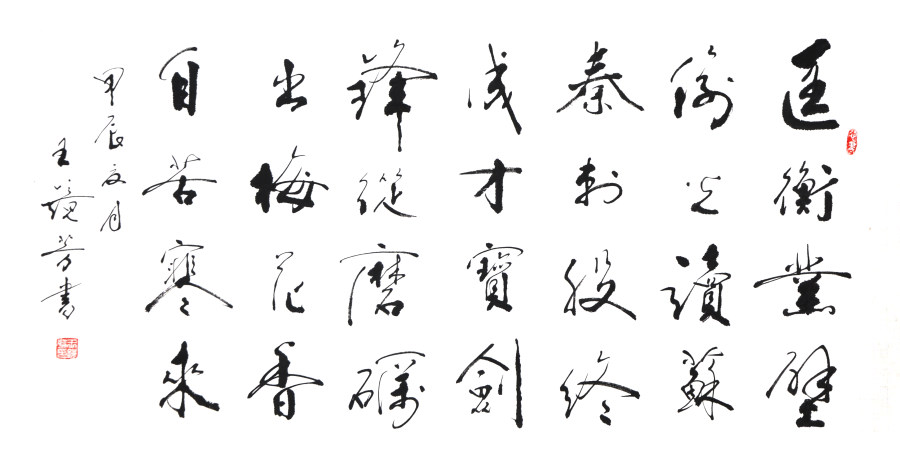 匡衡凿壁
偷光讀蘇
秦刺股終
成才寶劍
鋒從磨礪
出梅花香
自苦寒來
甲辰夏月
王芳書